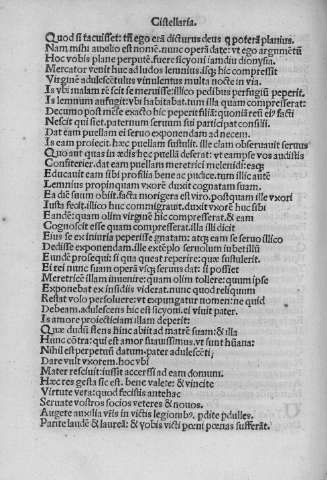 Cistellaria.
Quod si tacuisset: tñ ego erã dicturus deus q poterã planius.
Nam mihi auxilio est nomẽ. nunc operã date: vt ego argumẽtũ
Hoc vobis plane perputẽ. fuere sicyoni iamdiu dionysia.
Mercator venit huc ad ludos lemnius. isq; hic compressit
Virginẽ adulescẽtulus vinulentus multa nocte in via.
Is vbi malam rẽ scit se meruisse: illico pedibus perfugiũ peperit.
In lemnum aufugit: vbi habitabat. tum illa quam compresserat:
Decumo post mẽse exacto hic peperit filiã: quoniã reũ ei⁹ facti
Nescit qui siet. paternum seruum sui participat consilii.
Dat eam puellam ei seruo exponendam ad necem.
Is eam proiecit. hæc puellam sustulit. ille clam obseruauit seruus
Quo aut quas in ædis hec puellã deserat: vt eampse vos audistis
Confiterier. dat eam puellam meretrici melenidi: eaq;
Educauit eam sibi pro filia bene ac pudice. tum illic autẽ
Lemnius propinquam vxorẽ duxit cognatam suam.
Ea diẽ suum obiit. facta morigera est viro. postquam ille vxori
Iusta fecit. illico huc commigrauit. duxit vxorẽ huc sibi
Eandẽ: quam olim virginẽ hic compresserat. & eam
Cognoscit esse quam compresserat. illa illi dicit
Eius se ex iniuria peperisse gnatam: atq; eam se seruo illico
Dedisse exponendam. ille extẽplo seruolum iubet illũ
Eundẽ prosequi: si qua queat reperire: quæ sustulerit.
Ei rei nunc suam operã vsq; seruus dat: si possiet
Meretricẽ illam inuenire: quam olim tollere: quum ipse
Exponebat ex insidiis viderat. nunc quod reliquum
Restat volo persoluere: vt expungatur nomen: ne quid
Debeam. adulescens hic est sicyoni. ei viuit pater.
Is amore proiecticiam illam deperit:
Quæ dudũ flens hinc abiit ad matrẽ suam: & illa
Hunc cõtra: qui est amor suauissimus. vt sunt hũana:
Nihil est perpetuũ datum. pater adulescẽti:
Dare vult vxorem. hoc vbi
Mater resciuit: iusset accersi ad eam domum.
Hæc res gesta sic est. bene valete: & vincite
Virtute vera: quod fecistis antehac
Seruate vostros socios veteres & nouos.
Augete auxilia vr̃is in victis legionib⁹. pdite pduelles.
Parite laudẽ & laureã: & vobis victi pœni pœnas sufferãt.